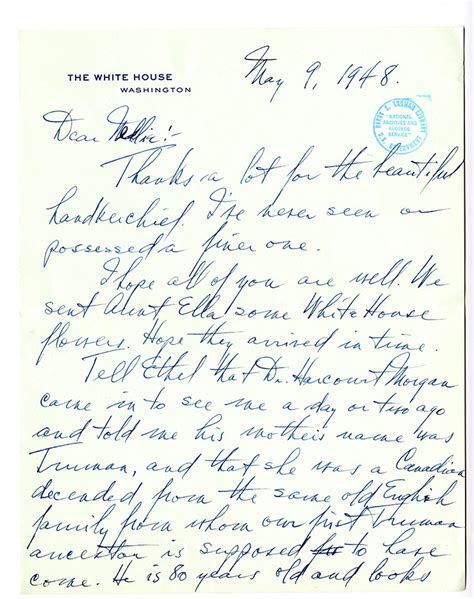 THE WHITE HOUSE
WASHINGTON
May 9, 1948.
HARRY S. TRUMAN LIBRARY
"NATIONAL
ARCHIVES AND
RECORDS
SERVICE"
Dear Nellie:-
Thanks a lot for the beautiful
handkerchief. I've never seen or
possessed a finer one.
I hope all of you are well. We
sent Aunt Ella some White House
flowers. Hope they arrived in time.
Tell Ethel that Dr. Harcourt Morgan
came in to see me a day or two ago
and told me his mother's name was
Truman, and that she was a Canadian
decended from the same old English
family from whom our first Truman
ancestor is supposed to have
come. He is 80 years old and looks